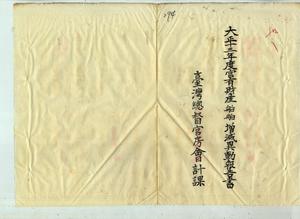 大正十三年度官有財産船舶増減異動報告書
臺灣總督官房會計課